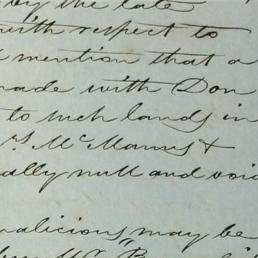 by the late
with respect to
mention that a
made with Don
to such lands in
rs McManus &
ally null and void
malicious may be